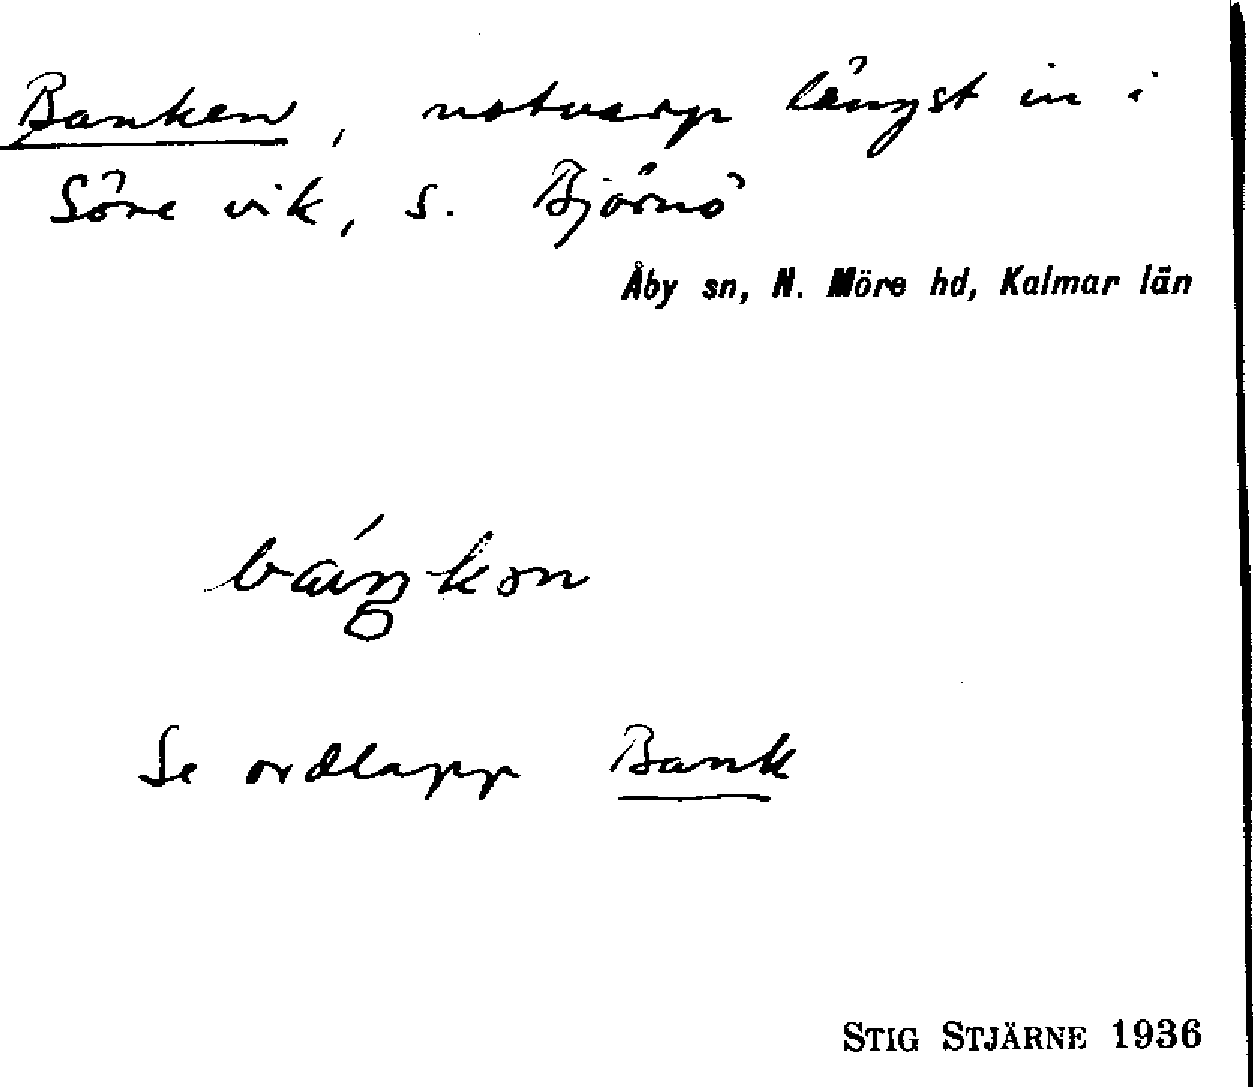 Banken, notvarp längst in i
Söre vik, s. Björnö
Åby sn, N. Möre hd, Kalmar län
Se ordlapp Bank
STIG STJÄRNE 1936